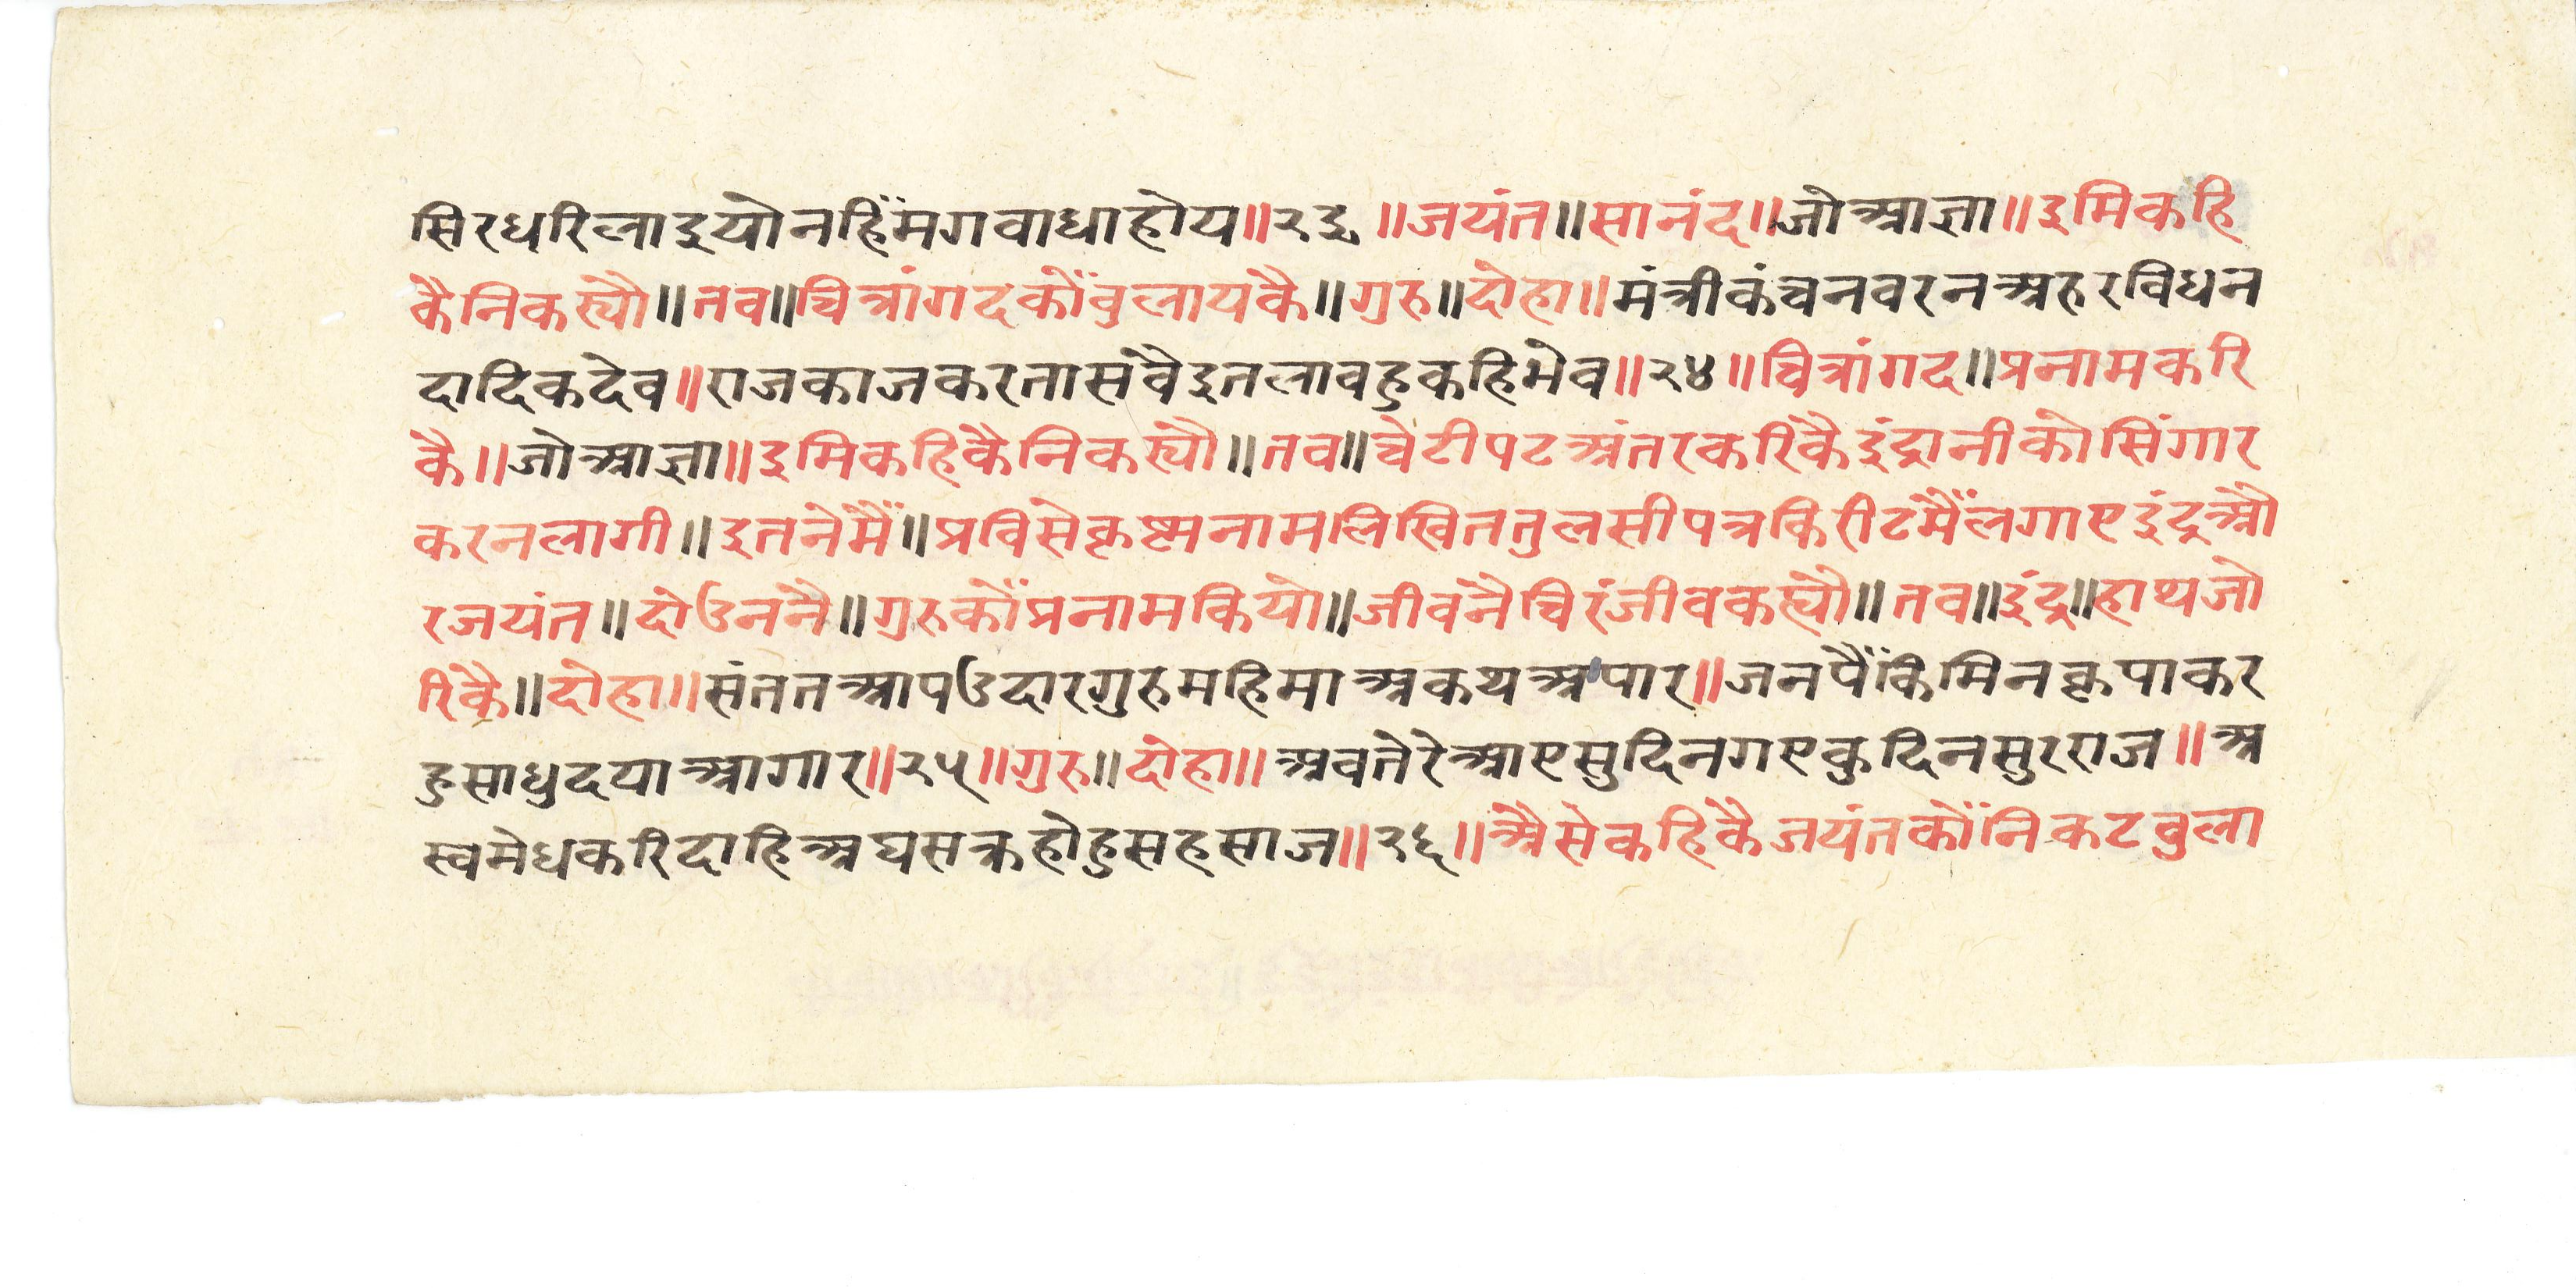 सिरधरिलाइयोनहिँमगवाधाहोय॥२३॥जयंत॥सानंद॥जोआज्ञा॥इमिकहि
कैनिकस्यौ॥तव॥चित्रांगदकोँवुलायकै॥गुरु॥दोहा॥मंत्रीकंचनवरनअरुरविधन
दादिकदेव॥राजकाजकरतासवैइतलावहुकहिभेव॥२४॥चित्रांगद॥प्रनामकरि
कै॥जोआज्ञा॥इमिकहिकैनिकस्यौ॥तव॥चेटीपटअंतरकरिकैइंद्रानीकोसिंगार
करनलागी॥इतनेमैँ॥प्रविसेकृष्टमनामलिखिततुलसीपत्रकिरीटमैँलगाएइंद्रऔ
रजयंत॥दोउननै॥गुरुकोँप्रनामकियो॥जीवनैचिरंजीवकह्यौ॥तव॥इंद्र॥हाथजो
रिकै॥दोहा॥संततआपउदारगुरुमहिमाअकथअपार॥जनपैँकिमिनकृपाकर
हुसाधुदयाआगार॥२५॥गुरु॥दोहा॥अवतेरेआएसुदिनगएकुदिनसुरराज॥अ
स्वमेधकरिदाहिअघसक्रहोहुसहसाज॥२६॥औसेकहिकैजयंतकोँनिकटवुला